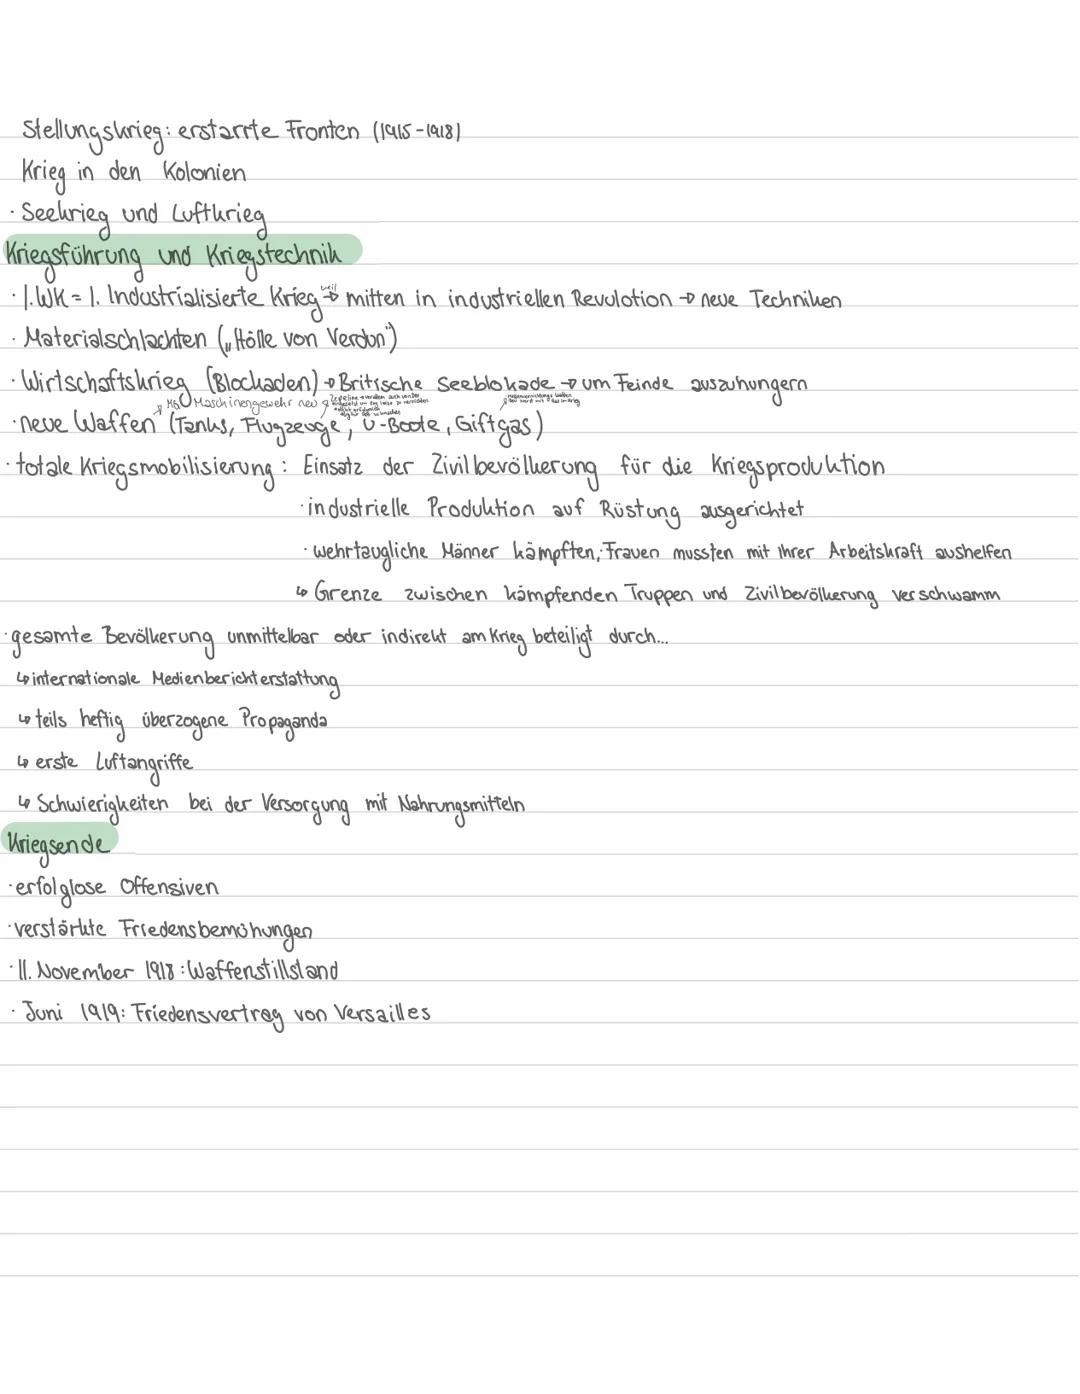 Stellungskrieg: erstarrte Fronten (1915-1918)
Krieg in den Kolonien
· Seekrieg und Luftkrieg
Kriegsführung und Kriegstechnik
· 1. WK = 1. Industrialisierte Krieg weil → mitten in industriellen Revulotion → neue Techniken
· Materialschlachten („Hölle von Verdun")
· Wirtschaftskrieg (Blockaden) → Britische Seeblokade → um Feinde auszuhungern
MG Maschinengewehr neu
· neue Waffen (Tanks, Flugzeuge, U-Boote, Giftgas)
· totale Kriegsmobilisierung: Einsatz der Zivilbevölkerung für die Kriegsproduktion
· industrielle Produktion auf Rüstung ausgerichtet
· wehrtaugliche Männer kämpften, Frauen mussten mit ihrer Arbeitskraft aushelfen
↳ Grenze zwischen kämpfenden Truppen und Zivilbevölkerung verschwamm
· gesamte Bevölkerung unmittelbar oder indirekt am Krieg beteiligt durch...
↳ internationale Medienberichterstattung
↳ teils heftig überzogene Propaganda
↳ erste Luftangriffe
↳ Schwierigkeiten bei der Versorgung mit Nahrungsmitteln
Kriegsende
· erfolglose Offensiven
· verstärkte Friedensbemühungen
· 11. November 1918: Waffenstillstand
· Juni 1919: Friedensvertrag von Versailles